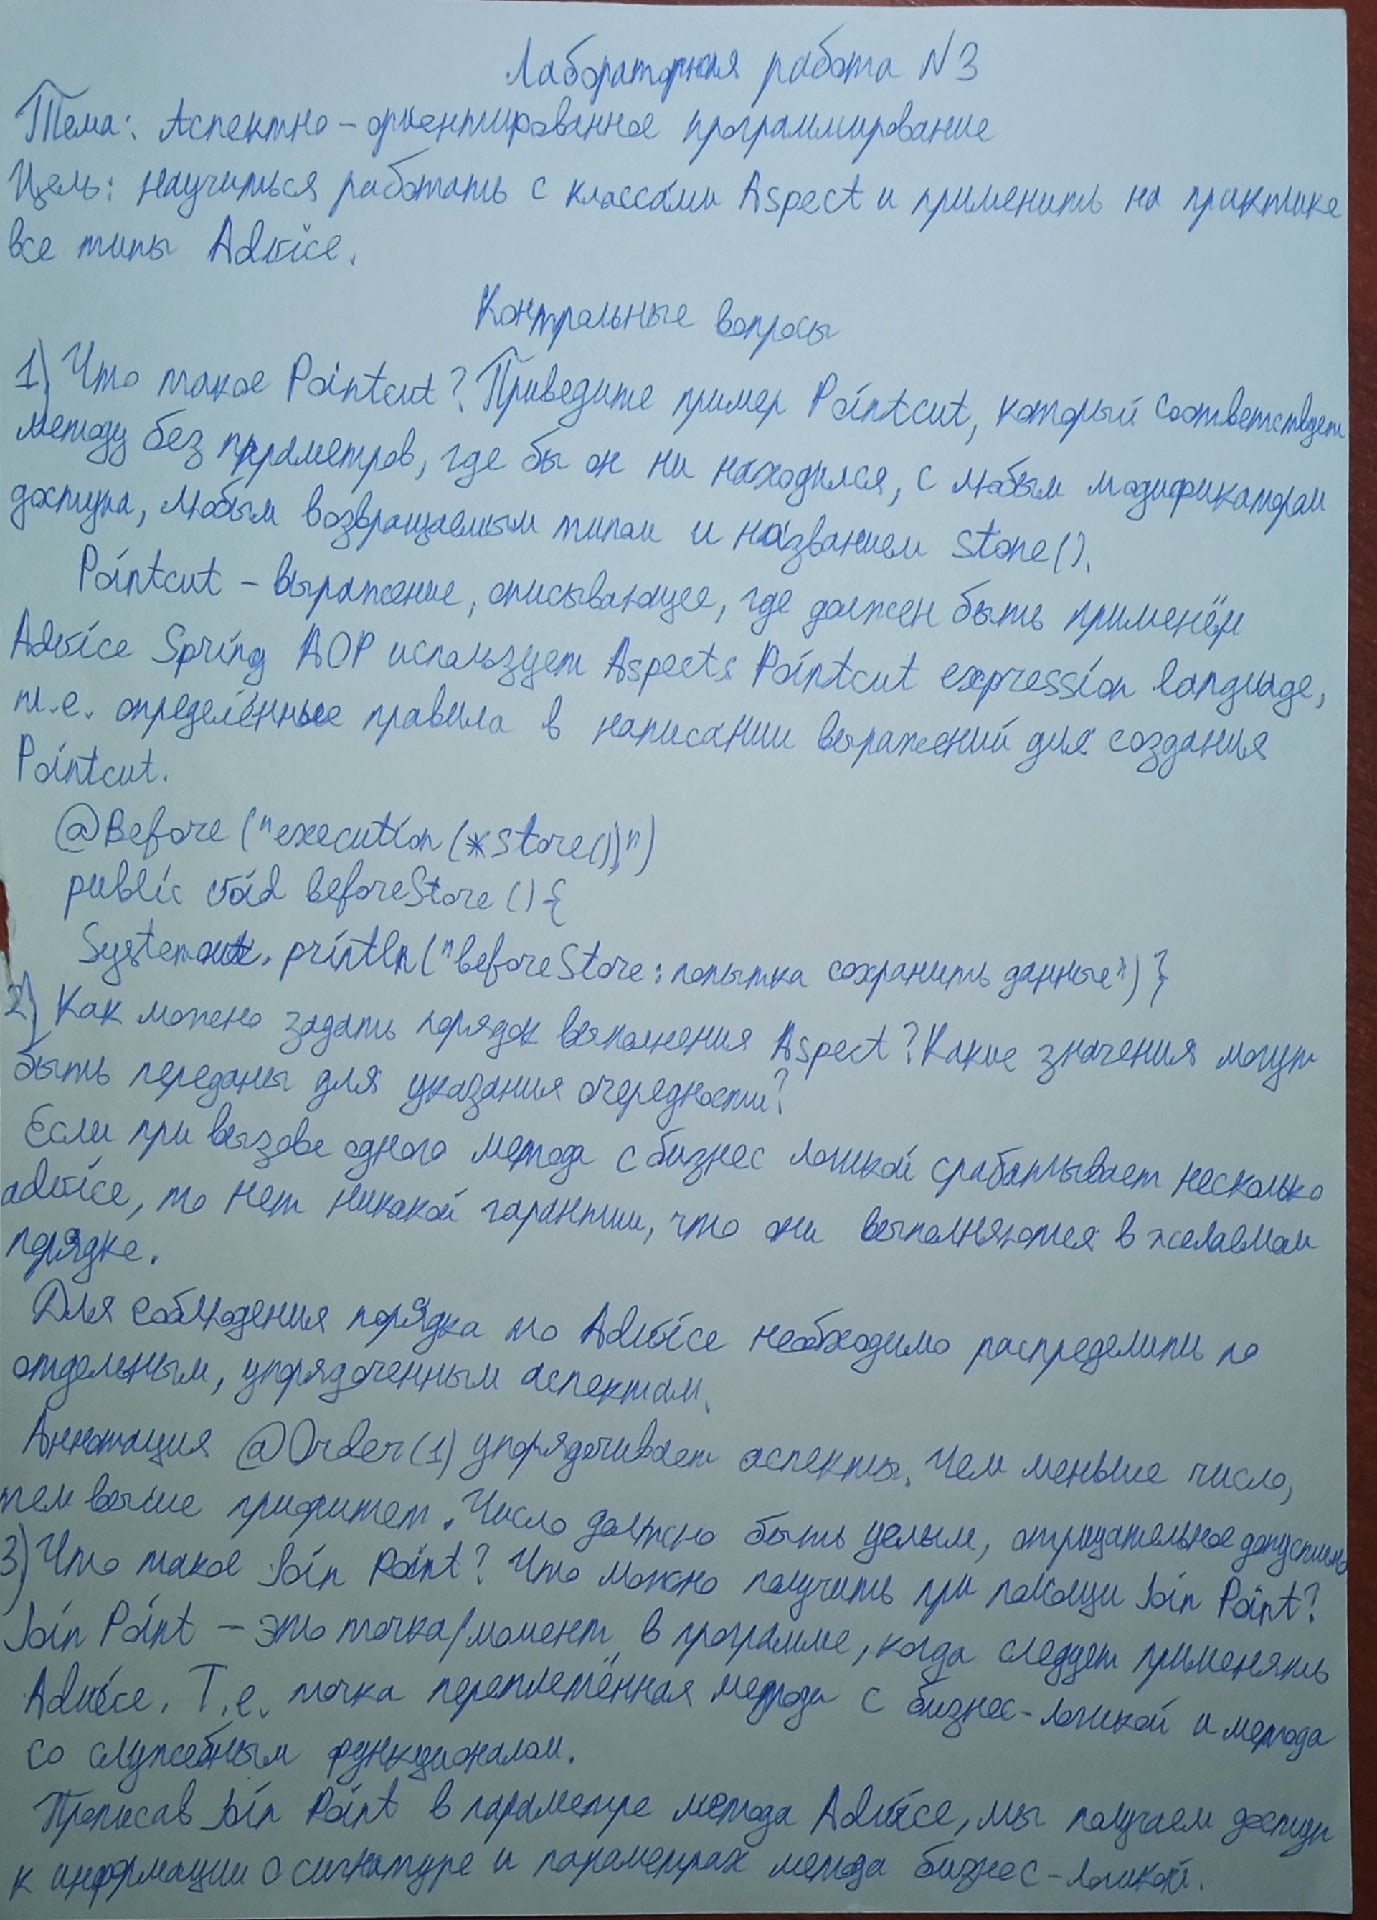 Лабораторная работа N3
Тема: Аспектно-ориентированное программирование
Цель: научиться работать с классами Aspect и применить на практике
все типы Advice.
Контрольные вопросы
1) Что такое Pointcut? Приведите пример Pointcut, который соответствует
методу без параметров, где бы он ни находился, с любым модификатором
доступа, любым возвращаемым типом и названием store().
Pointcut – выражение, описывающее, где должен быть применён
Advice Spring AOP использует Aspects Pointcut expression language,
т.е. определённые правила в написании выражений для создания
Pointcut.
@Before ("execution (*store())")
public void beforeStore () {
System.out. println ("beforeStore: попытка сохранить данные") }
2) Как можно задать порядок выполнения Aspect? Какие значения могут
быть переданы для указания очередности?
Если при вызове одного метода с бизнес логикой срабатывает несколько
advice, то нет никакой гарантии, что они выполняются в желаемом
порядке.
Для соблюдения порядка то Advice необходимо распределить по
отдельным, упорядоченным аспектам.
Аннотация @Order(1) упорядочивает аспекты. Чем меньше число,
тем выше приоритет. Число должно быть целым, отрицательное допустимо
3) Что такое Join Point? Что можно получить при помощи Join Point?
Join Point – это точка/момент в программе, когда следует применять
Advice. Т.е. точка переплетённая метода с бизнес-логикой и метода
со служебным функционалом.
Прописав Join Point в параметре метода Advice, мы получаем доступ
к информации о сигнатуре и параметрах метода бизнес-логики.